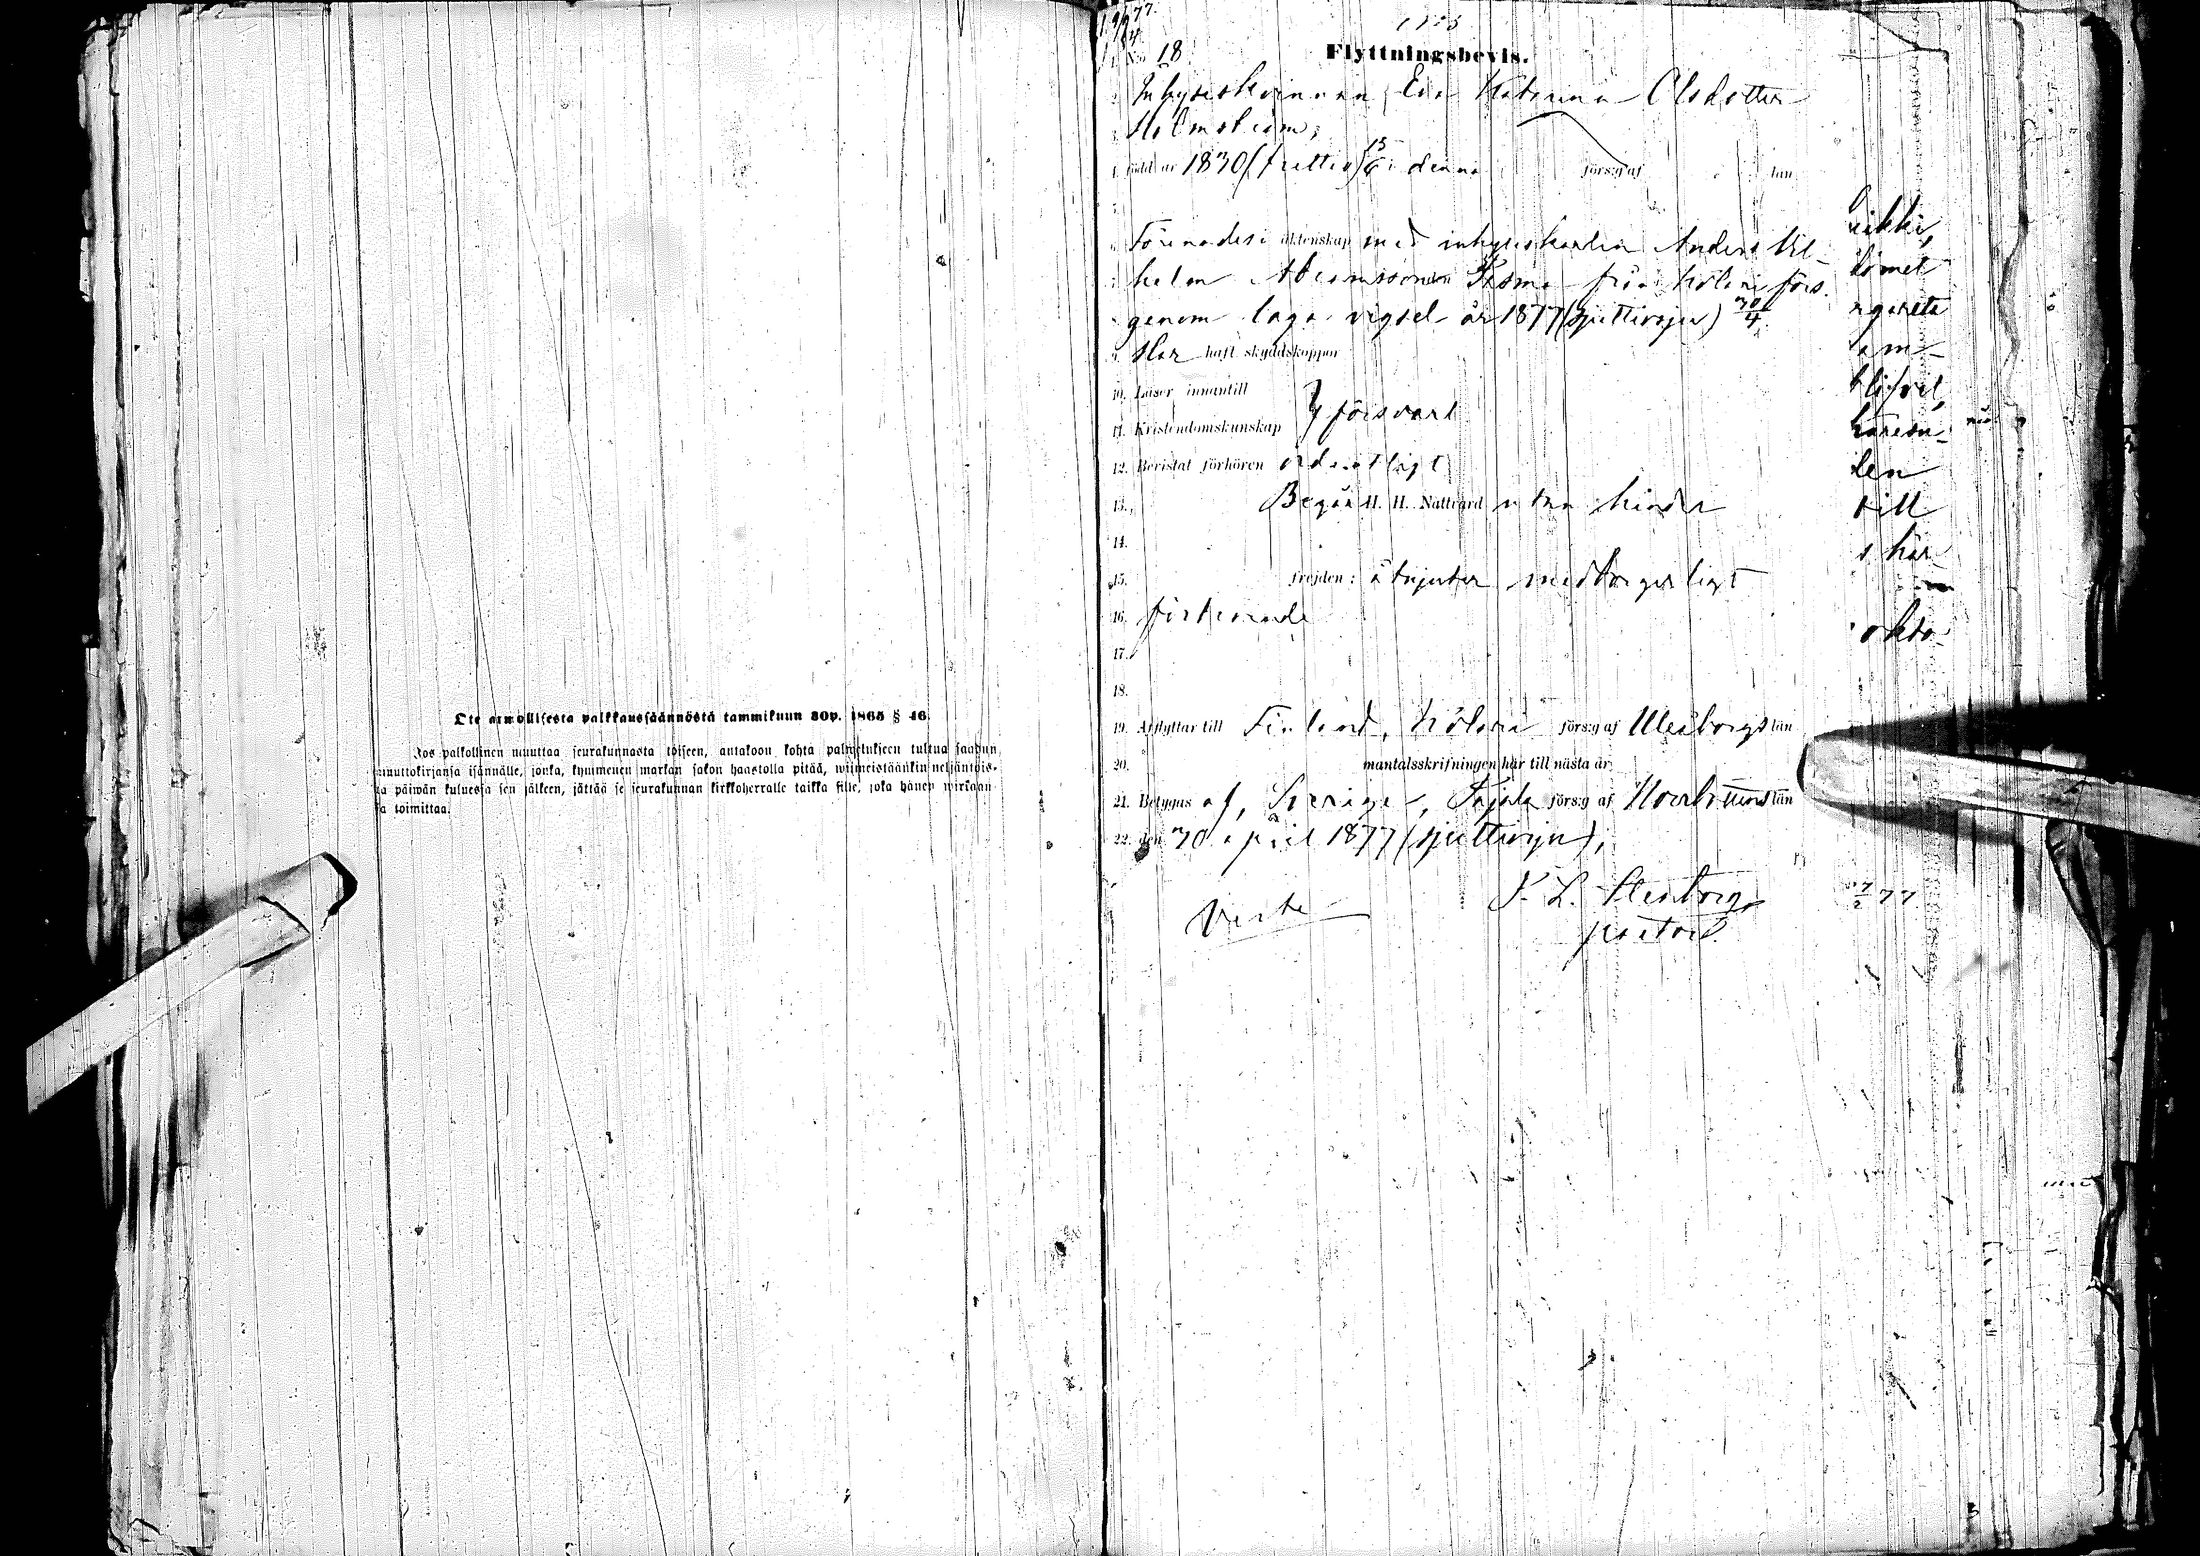 Ote armollisesta palkkaussäännöstä tammikuun 30p. 1865 § 46.
Jos palkollinen muuttaa seurakunnasta toiseen, antakoon kohta palwelukseen tultua saadun
muuttokirjansa isännälle, jonka, kymmenen markan sakon haastolla pitää, wiimeistäänkin neljäntois-
ta päiwän kuluessa sen jälkeen, jättää se seurakunnan kirkkoherralle taikka sille, joka hänen wirkaan-
sa toimittaa.
No 18
Flyttningsbevis.
2. Inhyseskvinnan Eva Katarina Olsdotter
3. Holmström;
4. född år 1830 (trettio) 15/6 i denna förs:g af län
5.
6. Förenades i äktenskap med inhyseskarlen Anders Vil-
7. helm Abramsson från Kolari förs.
8. genom laga vigsel år 1877 (sjuttiosju) 30/4
9. Har haft skyddskoppor
10. Läser innantill
11. Kristendomskunskap } försvarl
12. Bevistat förhören ordentligt
13. Begår H. H. Nattvard utan hinder
14.
15. frejden: åtnjuter medborgerligt
16. förtroende
17.
18.
19. Afflyttar till Finland, Kolari förs:g af Uleåborgs län
20. mantalsskrifningen här till nästa år
21. Betygas af, Sverige, Pajala förs:g af Norrbottens län
22. den 30 april 1877 (sjuttiosju);
J. L. Stenborg
pastor
Verte
rgareta
den
till
s här
okto-